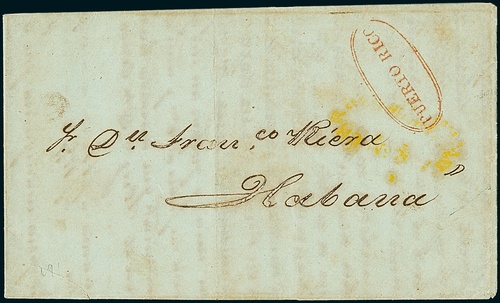 PUERTO RICO
Sr. Dn Franco Riera
Habana